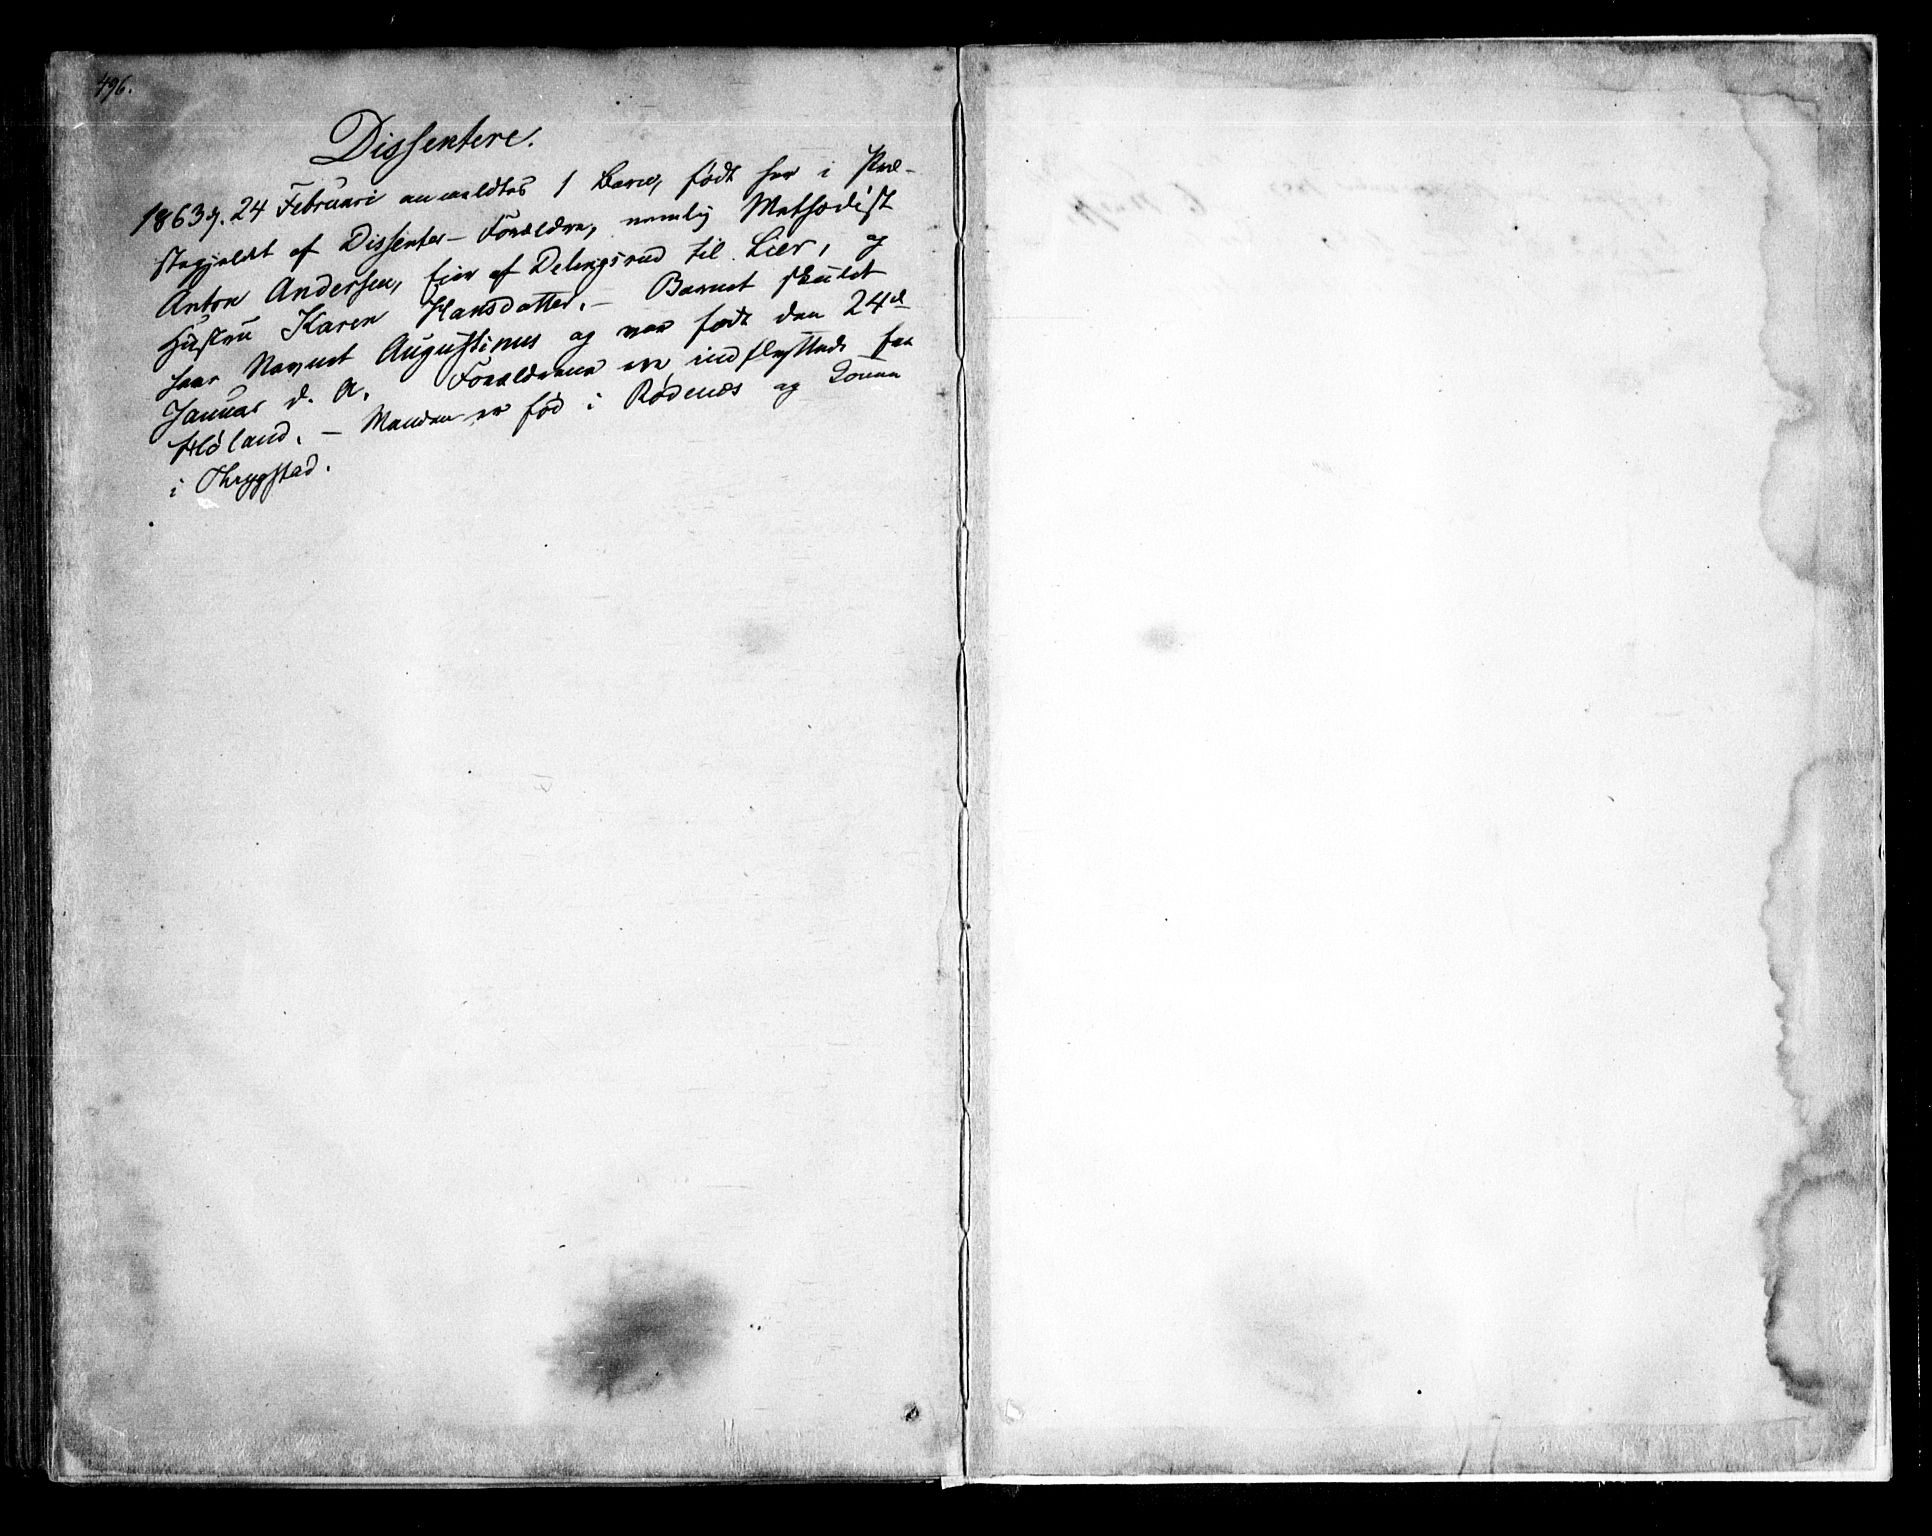 496.
Dissentere.
1863 d. 24 Februari anmeldtes 1 Barn, født her i Præ-
stegjeldet af Dissenter-Forældre, nemlig Methodist
Anton Andersen, Eier af Delingsrud til Lier, og
Hustru Karen Hansdatter. – Barnet skulde
have Navnet Augustinus og var født den 24de
Januar d. A. Forældrene ere indflyttede fra
Høland. – Manden er fød i Rødenæs og Konen
i Thrygstad.